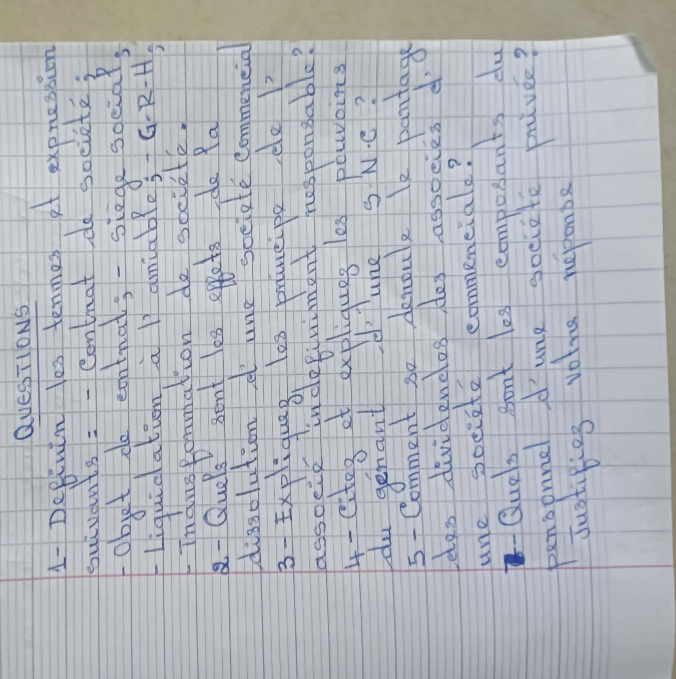 QUESTIONS
1- Definir les termes et expression
suivants : - Contrat de société ;
- Objet de contrat ; - siège social ;
- Liquidation à l'amiable ; - G.R.H ;
- Transformation de société.
2 - Quels sont les effets de la
dissolution d'une société commercial
3 - Expliquez les principe de l'
associé indefiniment responsable ?
4 - Citez et expliquez les pouvoirs
du gérant d'une S N C ?
5 - Comment se deroule le partage
des dividendes des associés d'
une société commerciale ?
- Quels sont les composants du
personnel d'une société privée ?
Justifiez votre réponse